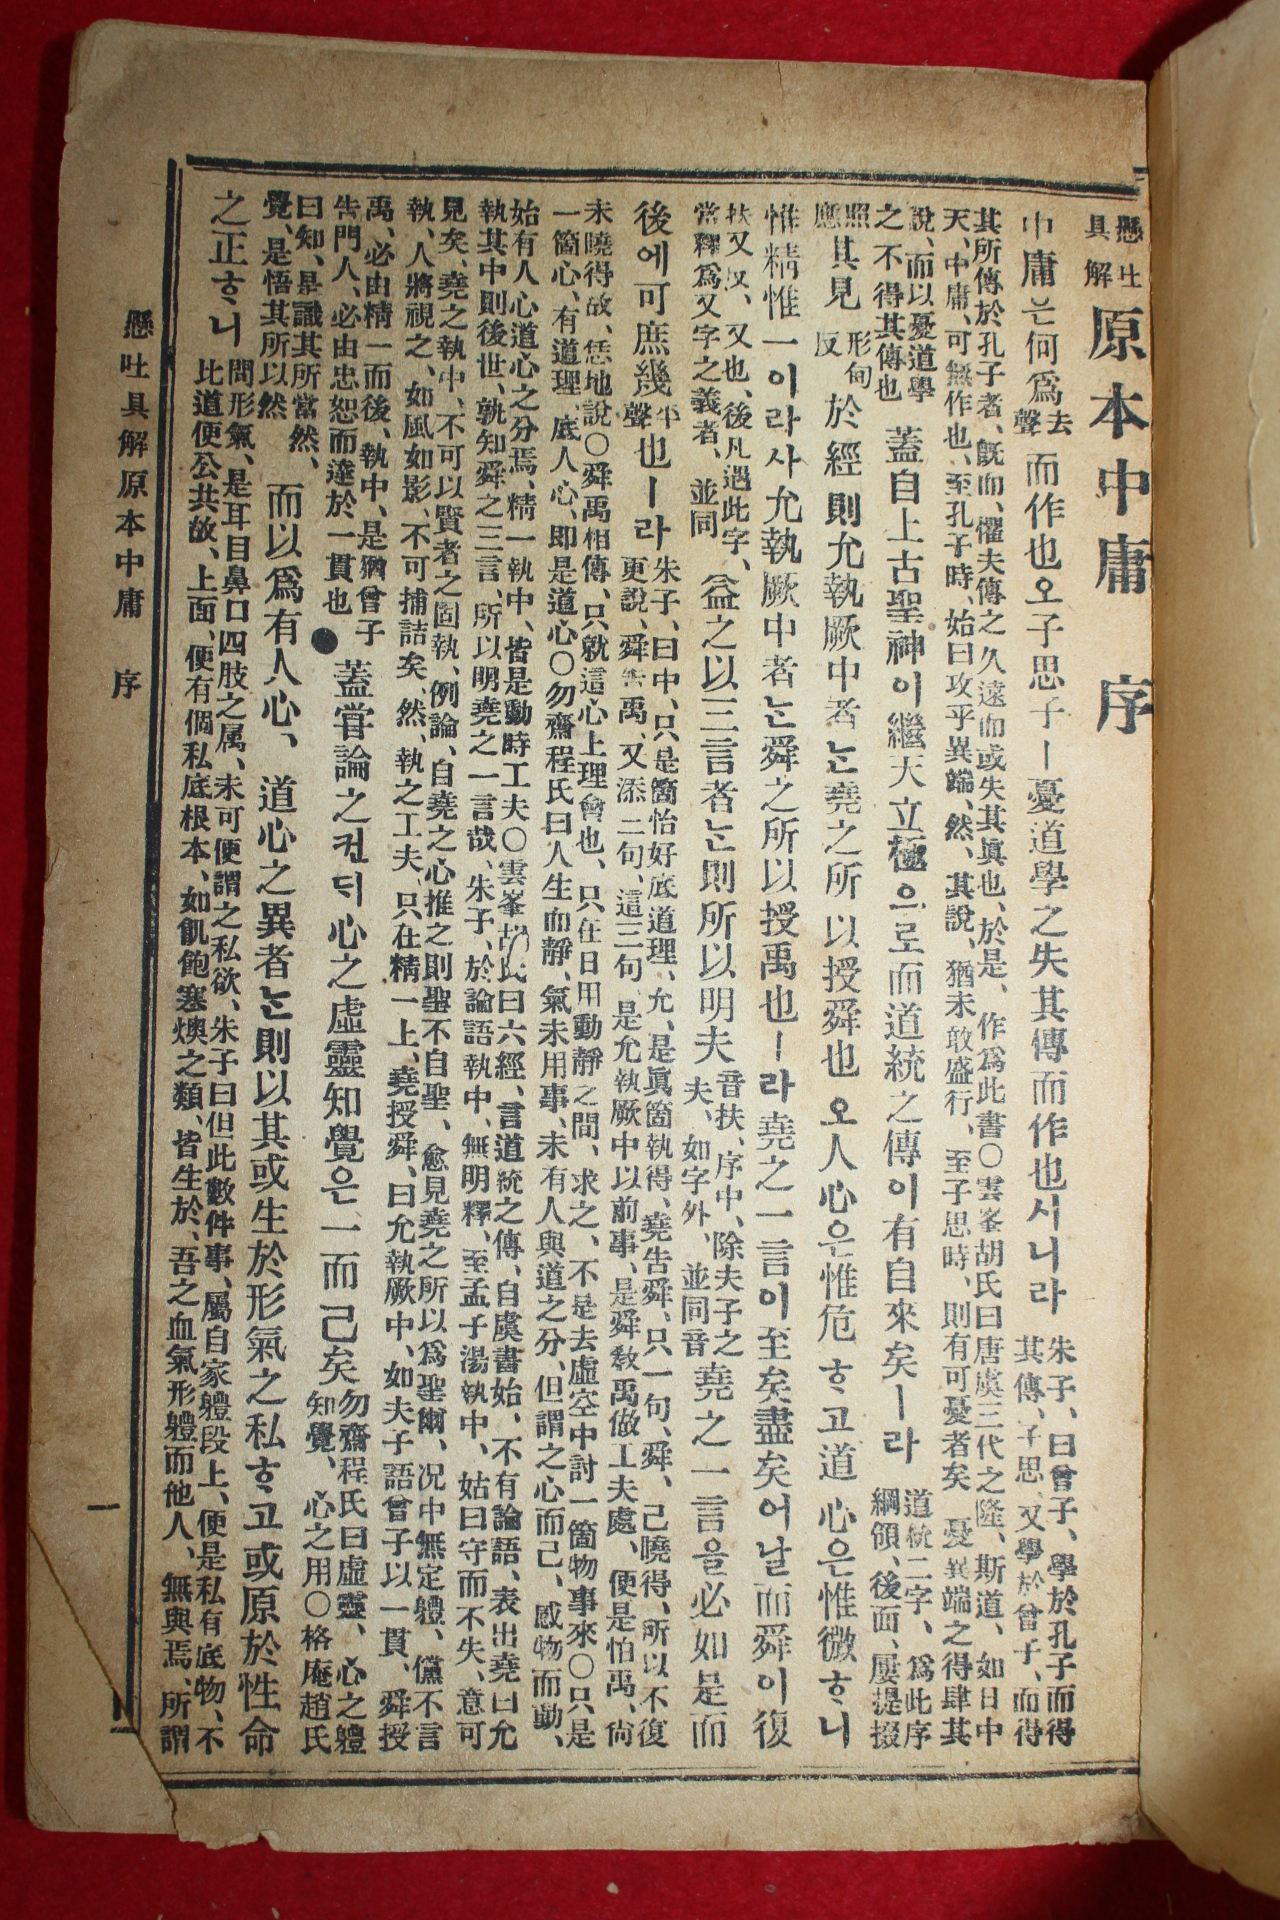 懸吐具解 原本中庸 序
中庸은何爲去聲而作也오子思子ㅣ憂道學之失其傳而作也시니라 朱子、曰曾子、學於孔子而得其傳、子思、又學於曾子、而得
其所傳於孔子者、旣而、懼夫傳之久遠而或失其眞也、於是、作爲此書○雲峯胡氏曰唐虞三代之隆、斯道、如日中
天、中庸、可無作也、至孔子時、始曰攻乎異端、然、其說、猶未敢盛行、至子思時、則有可憂者矣 憂異端之得肆其
說、而以憂道學之不得其傳也 蓋自上古聖神이繼天立極으로而道統之傳이有自來矣ㅣ라 道統二字、爲此序綱領、後面、屢提掇
照應 其見形甸反於經則允執厥中者는堯之所以授舜也오人心은惟危ᄒᆞ고道心은惟微ᄒᆞ니
惟精惟一이라사允執厥中者는舜之所以授禹也ㅣ라堯之一言이至矣盡矣어날而舜이復
扶又反、又也、後凡遇此字、當釋爲又字之義者、並同 益之以三言者는則所以明夫 音扶、序中、除夫子之夫、如字外、並同音 堯之一言을必如是而
後에可庶幾平聲也ㅣ라 朱子、曰中、只是箇恰好底道理、允、是眞箇執得、堯告舜、只一句、舜、已曉得、所以不復更說、舜告禹、又添二句、這三句 是允執厥中以前事、是舜敎禹做工夫處、便是怕禹、尙
未曉得故、恁地說○舜禹相傳、只就這心上理會也、只在日用動靜之間、求之、不是去虛空中討一箇物事來○只是
一箇心、有道理、底人心、卽是道心○勿齋程氏曰人生而靜、氣未用事、未有人與道之分、但謂之心而已、感物而動、
始有人心道心之分焉、精一執中、皆是動時工夫○雲峯胡氏曰六經、言道統之傳、自虞書始、不有論語、表出堯曰允
執其中則後世、孰知舜之三言、所以明堯之一言哉、朱子、於論語執中、無明釋、至孟子湯執中、姑曰守而不失、意可
見矣、堯之執中、不可以賢者之固執、例論、自堯之心推之則聖不自聖、愈見堯之所以爲聖爾、况中無定體、儻不言
執、人將視之、如風如影、不可捕詰矣、然、執之工夫、只在精一上、堯授舜、曰允執厥中、如夫子語曾子以一貫、舜授
禹、必由精一而後、執中、是猶曾子告門人、必由忠恕而達於一貫也 ●蓋甞論之컨ᄃᆡ心之虛靈知覺은一而已矣 勿齋程氏曰虛靈、心之體知覺、心之用○格庵趙氏
曰知、是識其所當然、覺、是悟其所以然 而以爲有人心、道心之異者는則以其或生於形氣之私ᄒᆞ고或原於性命
之正ᄒᆞ니 問形氣、是耳目鼻口四肢之屬、未可便謂之私欲、朱子曰但此數件事、屬自家體段上、便是私有底物、不比道便公共故、上面、便有個私底根本、如飢飽寒燠之類、皆生於、吾之血氣形體而他人、無與焉、所謂
懸吐具解原本中庸 序
一